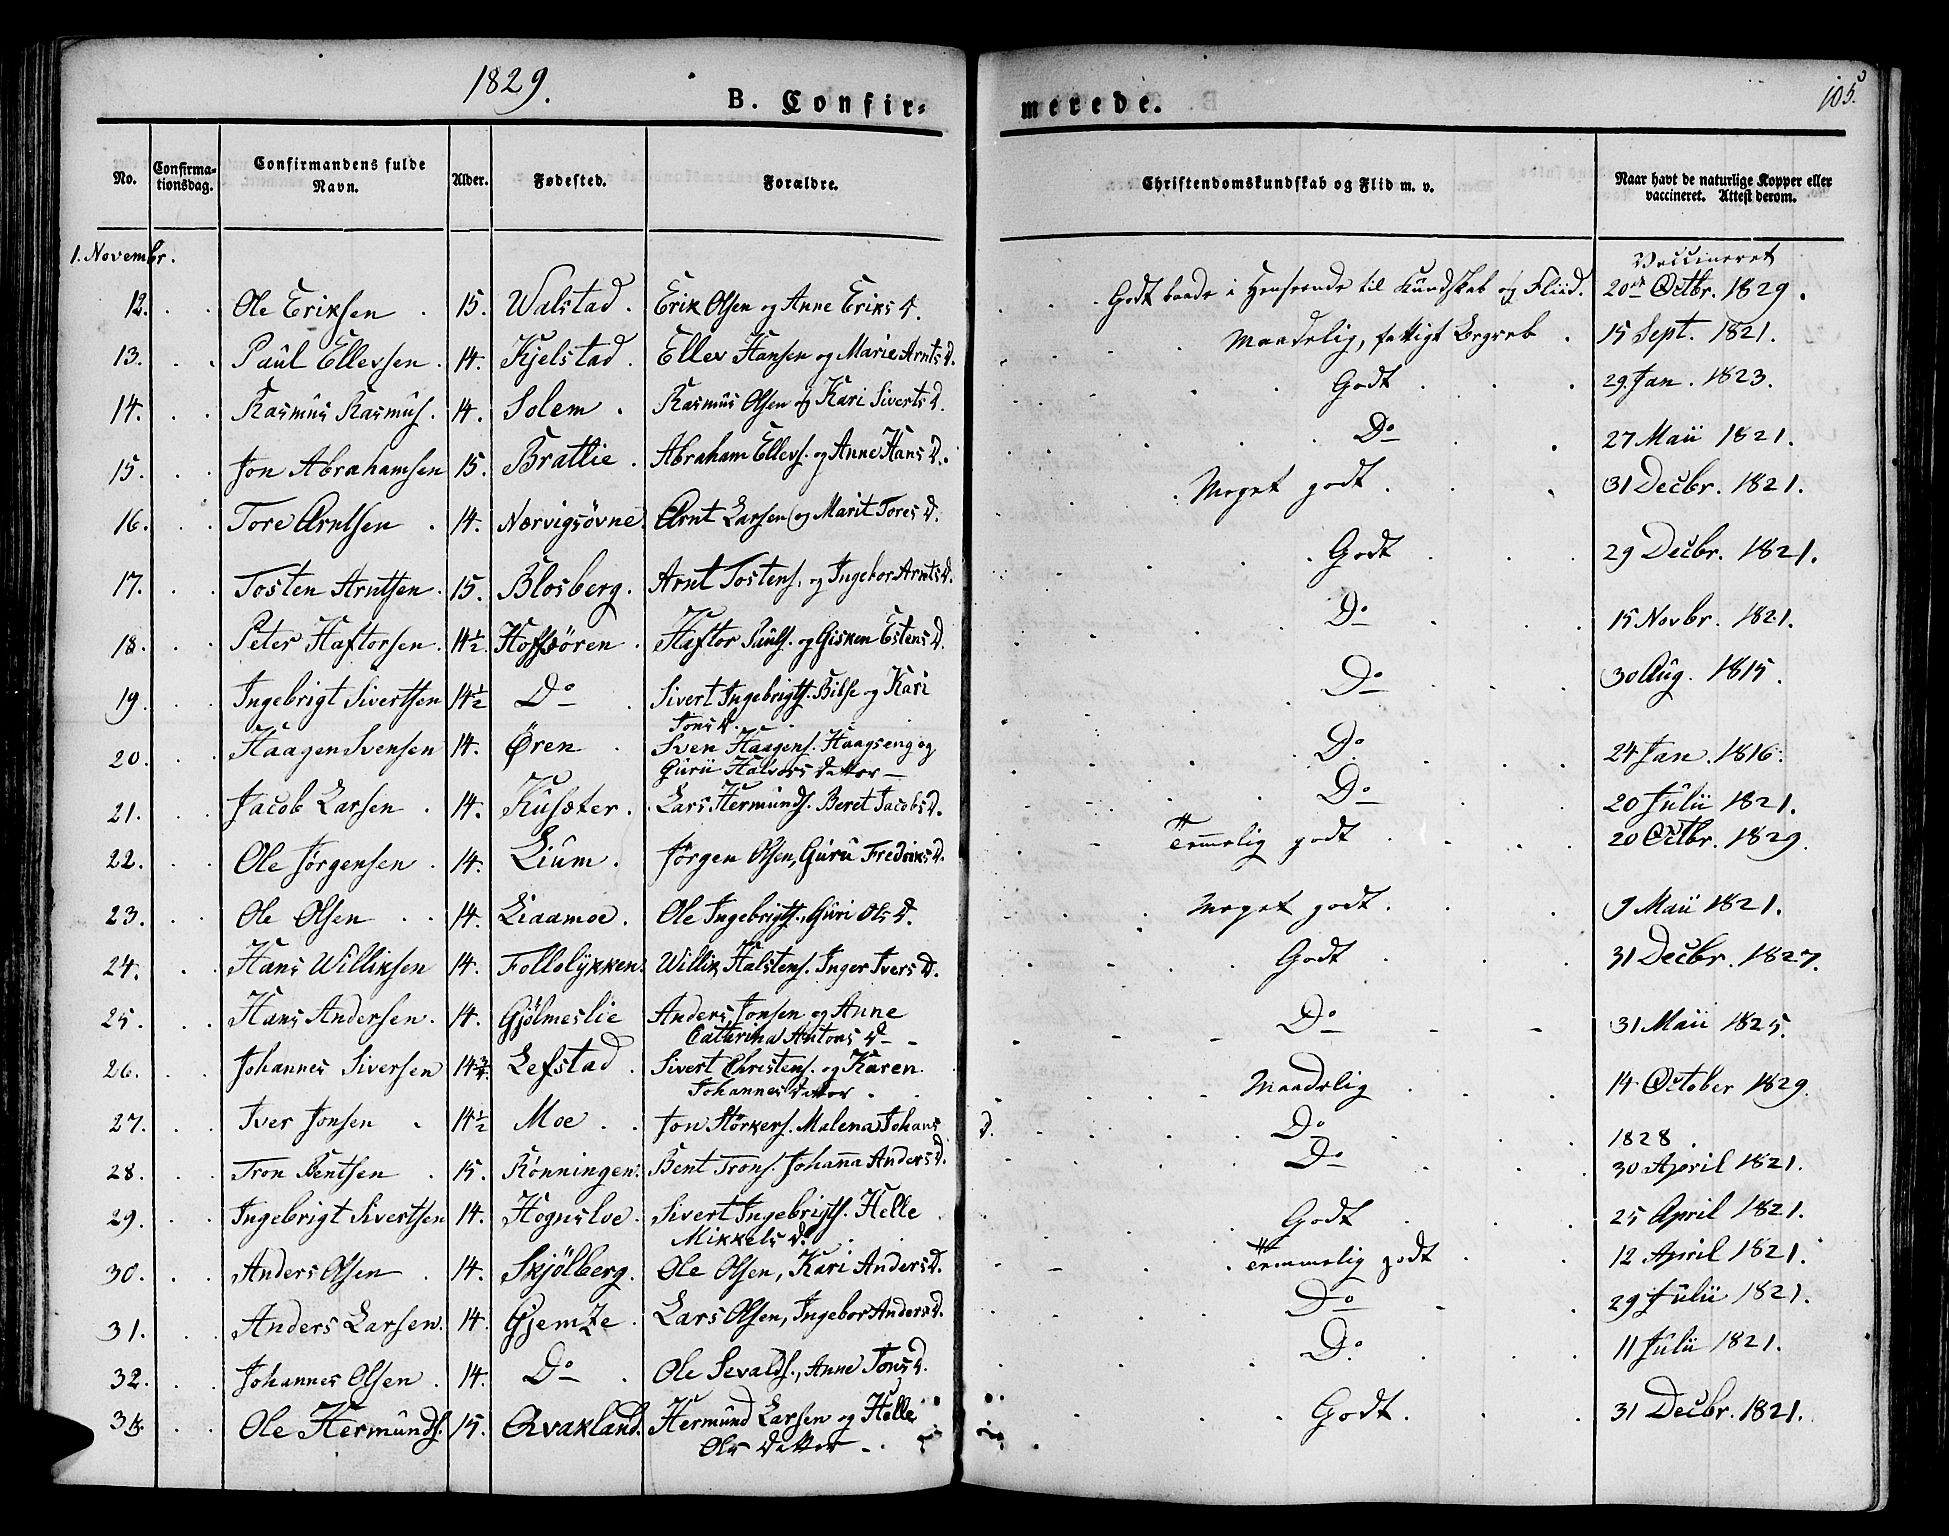 1829.
B. Confir-
merede.
105.
No. Confirma-tionsdag. Confirmandens fulde Navn. Alder. Fødested. Forældre. Christendomskundskab og Flid m. v. Naar havt de naturlige Kopper eller vaccineret. Attest derom.
1. Novembr.
Vaccineret
12. Ole Eriksen 15. Walstad. Erik Olsen og Anne Eriks D. Godt baade i Henseende til Kundskab og Fliid. 20de Octbr. 1829.
13. Paul Ellevsen. 14. Kjelstad. Ellev Hansen og Marie Arnts D. Maadelig, fattigt Begreb. 15 Sept. 1821.
14. Rasmus Rasmus. 14. Solem. Rasmus Olsen og Kari Siverts D. Godt 29. Jan. 1823.
15. Jon Abrahamsen 15. Brattlie. Abraham Ellevs. og Anne Hans D. Do 27 Maii 1821.
16. Tore Arntsen 14. Nærvigsøvne Arnt Larsen og Marit Tores D. Meget godt. 31 Decbr. 1821.
17. Tosten Arntsen. 15. Blosberg. Arnt Tostens. og Ingebor Arnts D. Godt 29 Decbr. 1821.
18. Peter Haftorsen. 14½ Hofsøren. Haftor Pauls. og Gisken Estens D. Do 15 Novbr. 1821.
19. Ingebrigt Sivertsen 14½ Do Sivert Ingebrigts. Bilse og Kari
Jons D. Do 30 Aug. 1815.
20. Haagen Svensen 14. Øren Sven Haagens. Haagseng og
Guru Halvors Datter Do 24 Jan. 1816.
21. Jacob Larsen 14. Kusæter. Lars Hermunds. Beret Jacobs D. Do 20 Julii 1821.
22. Ole Jørgensen 14. Lium. Jørgen Olsen, Guru Fredriks D. Temmelig godt 20 Octbr. 1829.
23. Ole Olsen 14. Liaamoe. Ole Ingebrigts., Guri Ols D. Meget godt. 9 Maii 1821.
24. Hans Williksen 14. Follolykken. Willik Halstens. Inger Ivers D. Godt 31 Decbr. 1827.
25. Hans Andersen. 14. Gjølmeslie Anders Jonsen og Anne
Catherina Antons D Do 31 Maii 1825.
26. Johannes Siversen 14¾ Lefstad. Sivert Christens. og Karen
Johannes Datter Maadelig 14 October 1829.
27. Iver Jonsen 14½ Moe. Jon Størkers. Malena Johans D. Do 1828.
28. Tron Bentsen 15. Rønningen. Bent Trons. Johanna Anders D. Do 30 April 1821.
29. Ingebrigt Sivertsen 14. Hognsloe. Sivert Ingebrigts. Helle
Mikkels D. Godt 25 April 1821.
30. Anders Olsen 14. Skjølberg. Ole Olsen, Kari Anders D. Temmelig godt 12 April 1821.
31. Anders Larsen. 14. Gjemze. Lars Olsen, Ingebor Anders D. Do 29 Julii 1821.
32. Johannes Olsen. 14. Do Ole Sivalds., Anne Jons D. Do 11 Julii 1821.
Ole Hermunds. 15. Qvakland. Hermund Larsen og Helle
Ols Datter Godt. 31 Decbr. 1821.